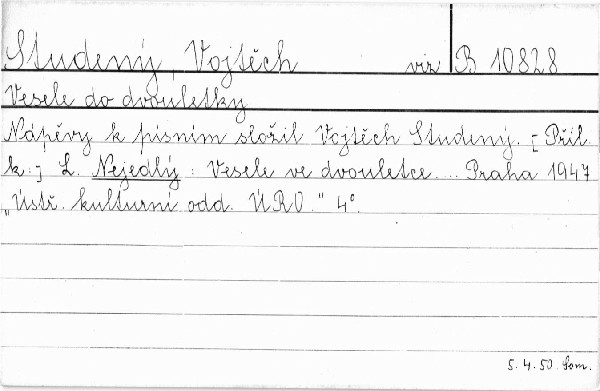 Studený, Vojtěch viz B 10828
Vesele do dvouletky
Nápěvy k písním složil Vojtěch Studený. [Příl.
k:] L. Nejedlý: Vesele ve dvouletce... Praha 1947
„Ústř. kulturní odd. ÚRO." 4°.
5.4.50. Som.